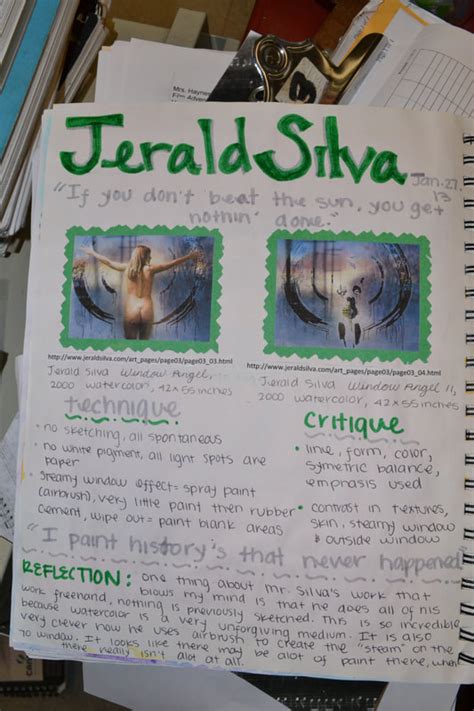 Mrs. Hayne
Film Adven
Jerald Silva
Jan. 27,
13
"If you don't beat the sun, you get
nothin' done."
http://www.jeraldsilva.com/art_pages/page03/page03_03.html
http://www.jeraldsilva.com/art_pages/page03/page03_04.html
Jerald Silva Window Angel,
2000 watercolor, 42x55 inches
Jerald Silva Window Angel II,
2000 watercolor, 42x55 inches
technique
• no sketching, all spontaneous
• no white pigment, all light spots are
paper
• Steamy window effect = spray paint
(airbrush), very little paint then rubber
cement, wipe out = paint blank areas
Critique
• line, form, color,
symetric balance,
emphasis used
• contrast in textures,
skin, steamy window
& outside window
"I paint history's that never happened
REFLECTION: one thing about mr. Silva's work that
blows my mind is that he does all of his
work freehand, nothing is previously sketched. This is so incredible
because watercolor is a very unforgiving medium. It is also
very clever how he uses airbrush to create the "steam" on the
window. It looks like there may be alot of paint there, when
there really isn't alot at all.